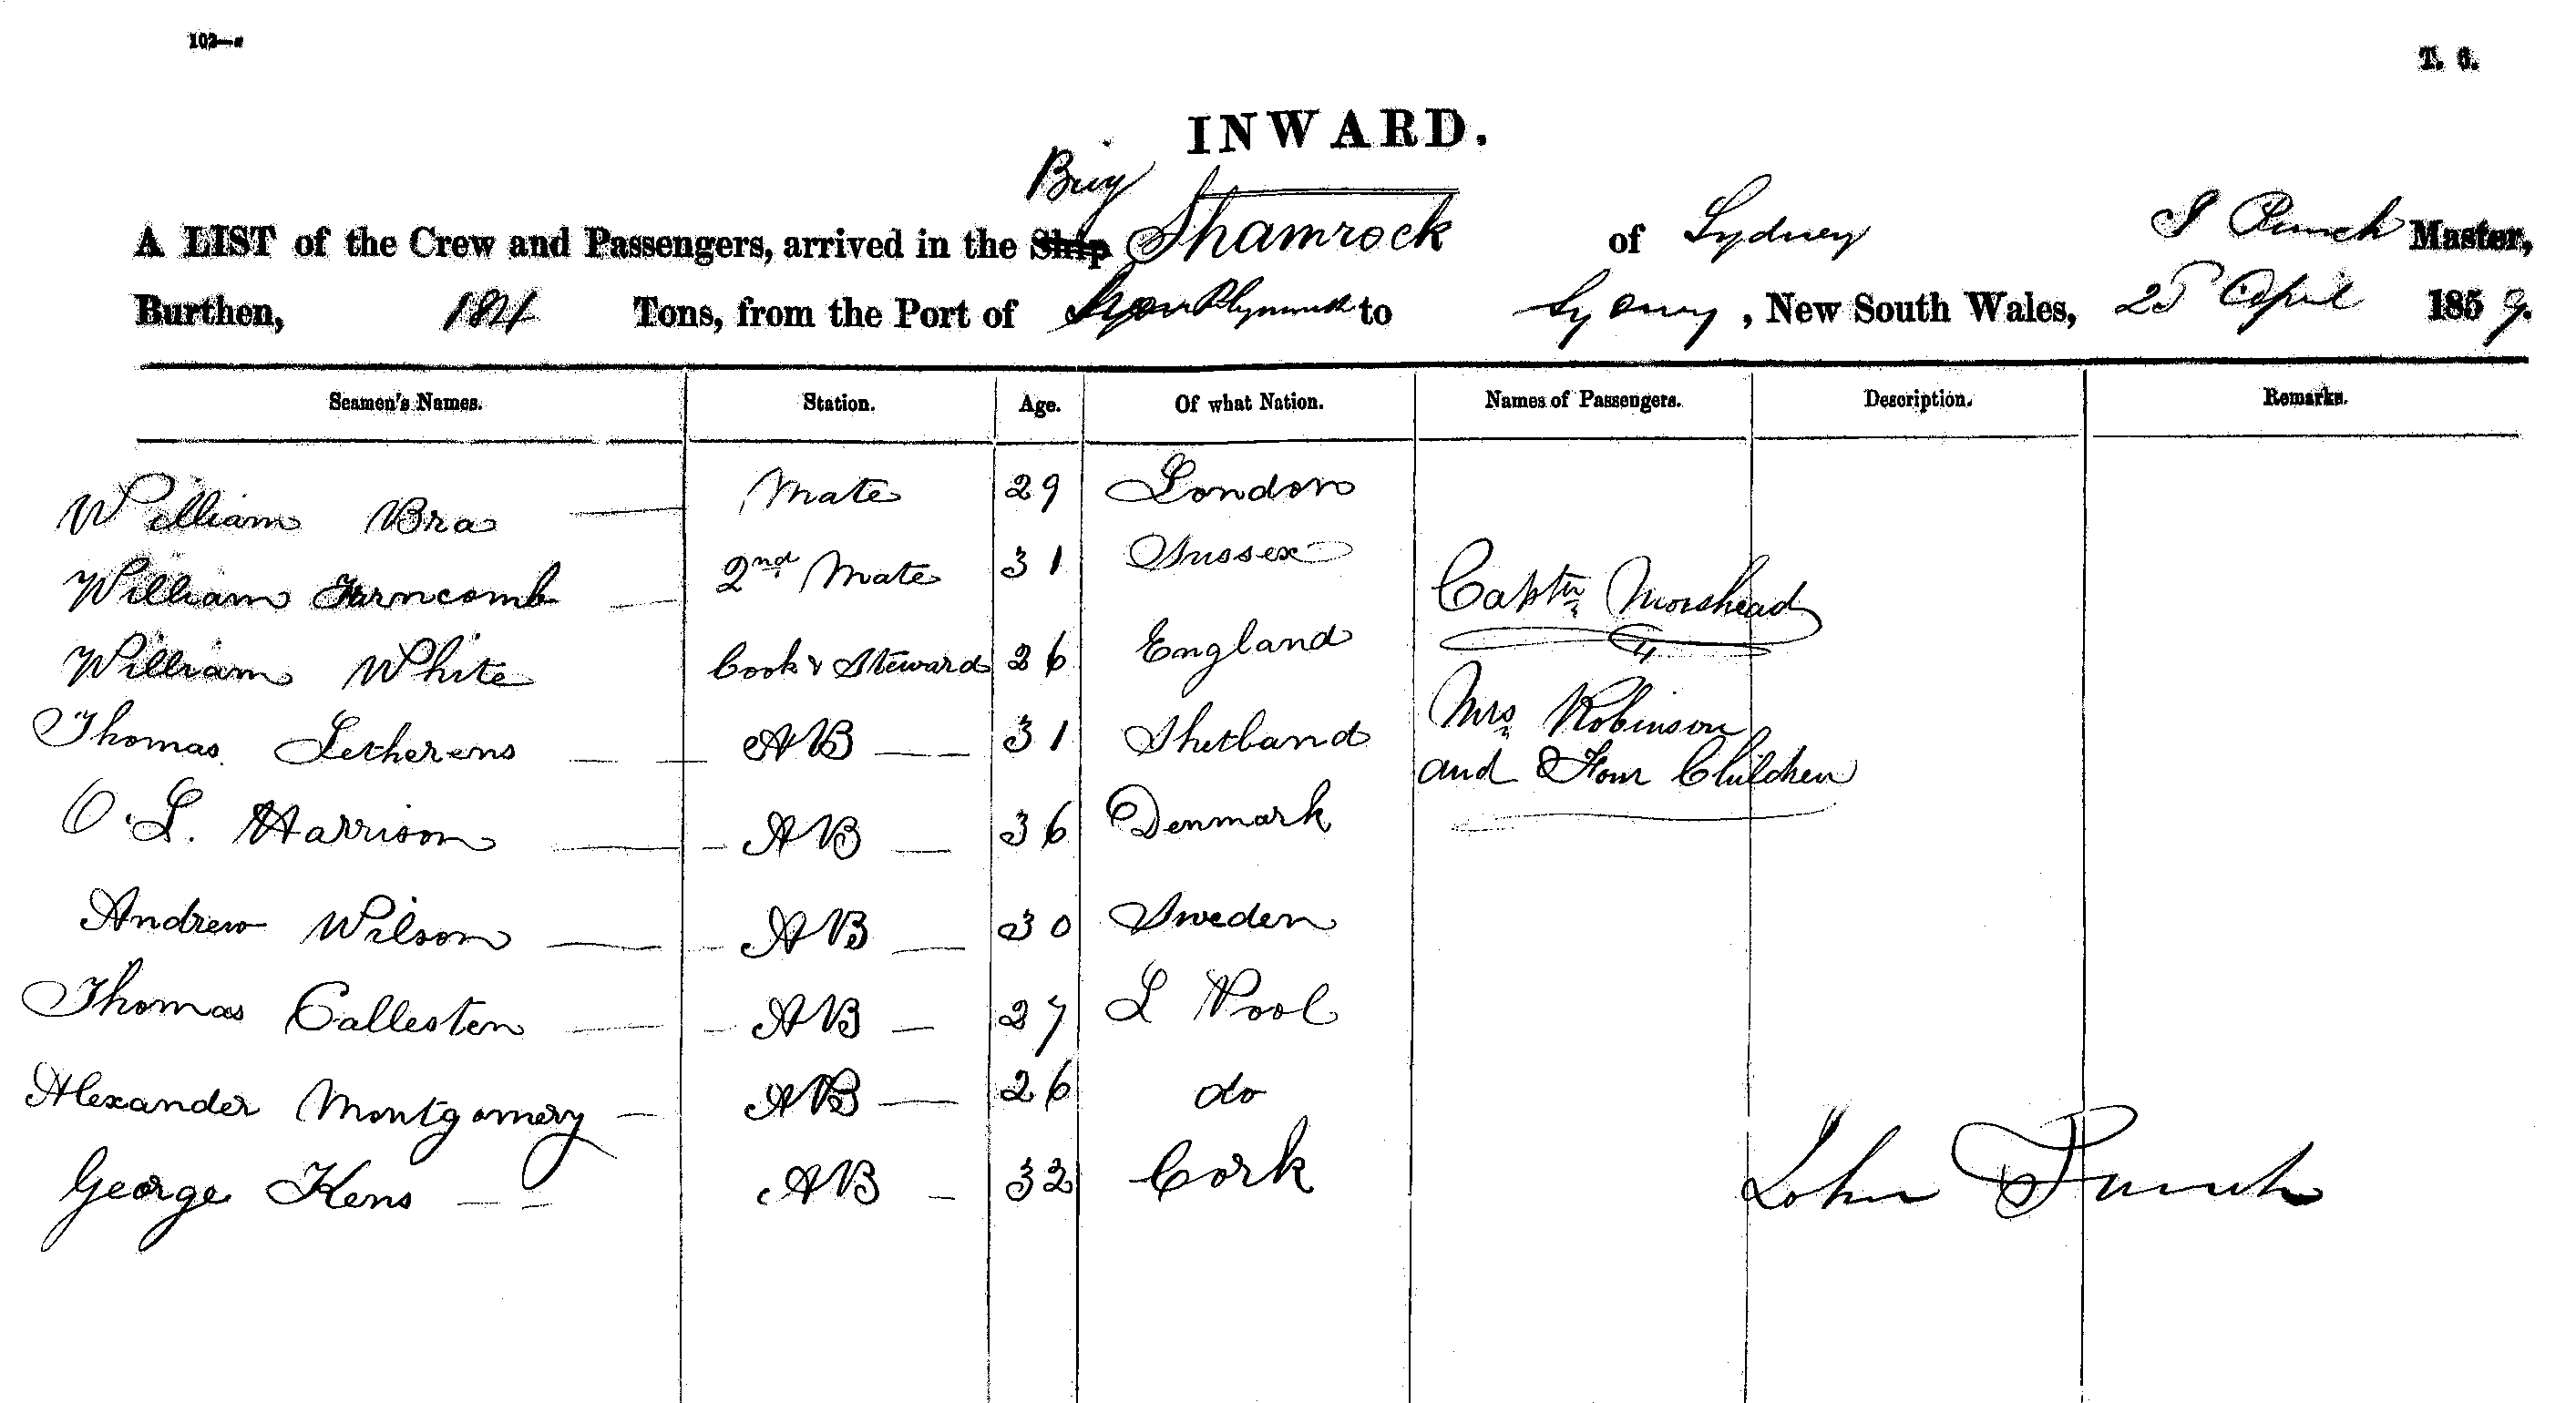 102—
T. 6.
INWARD.
Brig
A LIST of the Crew and Passengers, arrived in the Ship Shamrock of Sydney J Punch Master,
Burthen, Tons, from the Port of Plymouth to Sydney, New South Wales, 25 April 1859.
Seamen's Names. Station. Age. Of what Nation. Names of Passengers. Description. Remarks.
William Bra — Mate 29 London
William Farncomb — 2nd Mate 31 Sussex Captn Morshead
William White Cook & Steward 26 England
Thomas Letherens — — AB — — 31 Shetland Mrs Robinson
and Four Children
O. L. Harrison — — AB — 36 Denmark
Andrew Wilson — — AB — 30 Sweden
Thomas Callesten — — AB — 27 L Pool
Alexander Montgomery — AB — 26 do
George Kens — — AB — 32 Cork John Punch